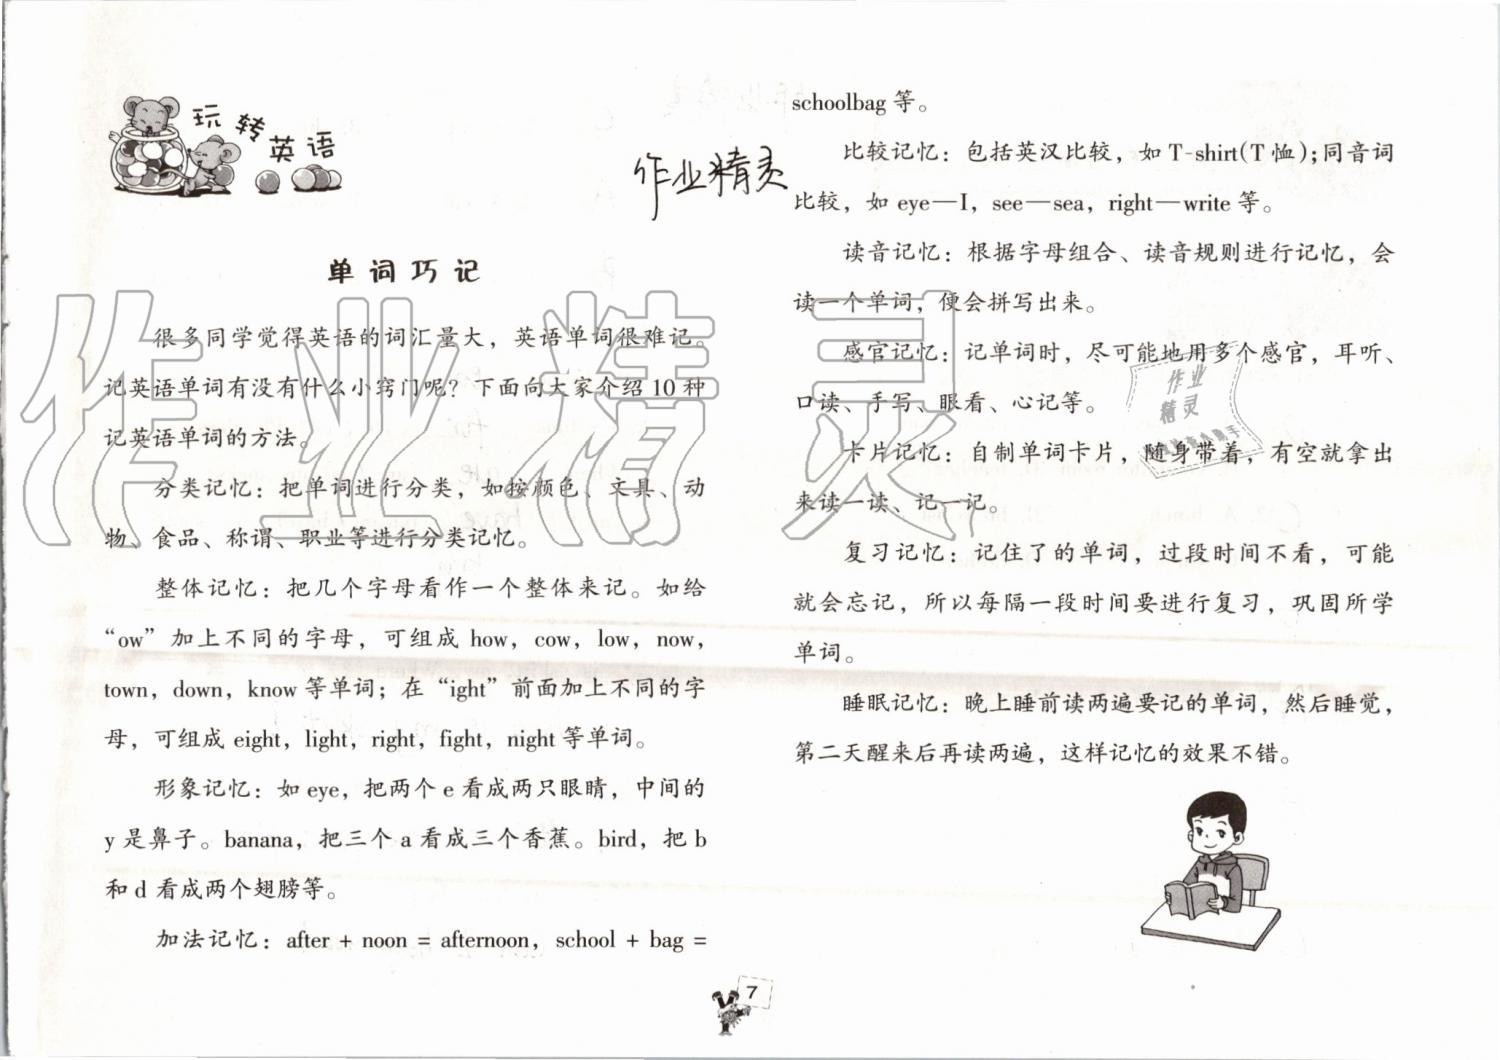 玩转英语
作业精灵
单词巧记
很多同学觉得英语的词汇量大，英语单词很难记。
记英语单词有没有什么小窍门呢？下面向大家介绍 10 种
记英语单词的方法。
分类记忆：把单词进行分类，如按颜色、文具、动
物、食品、称谓、职业等进行分类记忆。
整体记忆：把几个字母看作一个整体来记。如给
“ow”加上不同的字母，可组成 how，cow，low，now，
town，down，know 等单词；在“ight”前面加上不同的字
母，可组成 eight，light，right，fight，night 等单词。
形象记忆：如 eye，把两个 e 看成两只眼睛，中间的
y 是鼻子。banana，把三个 a 看成三个香蕉。bird，把 b
和 d 看成两个翅膀等。
加法记忆：after + noon = afternoon，school + bag =
schoolbag 等。
比较记忆：包括英汉比较，如 T-shirt(T 恤)；同音词
比较，如 eye—I，see—sea，right—write 等。
读音记忆：根据字母组合、读音规则进行记忆，会
读一个单词，便会拼写出来。
感官记忆：记单词时，尽可能地用多个感官，耳听、
口读、手写、眼看、心记等。
卡片记忆：自制单词卡片，随身带着，有空就拿出
来读一读、记一记。
复习记忆：记住了的单词，过段时间不看，可能
就会忘记，所以每隔一段时间要进行复习，巩固所学
单词。
睡眠记忆：晚上睡前读两遍要记的单词，然后睡觉，
第二天醒来后再读两遍，这样记忆的效果不错。
作业精灵
作业
精灵
7